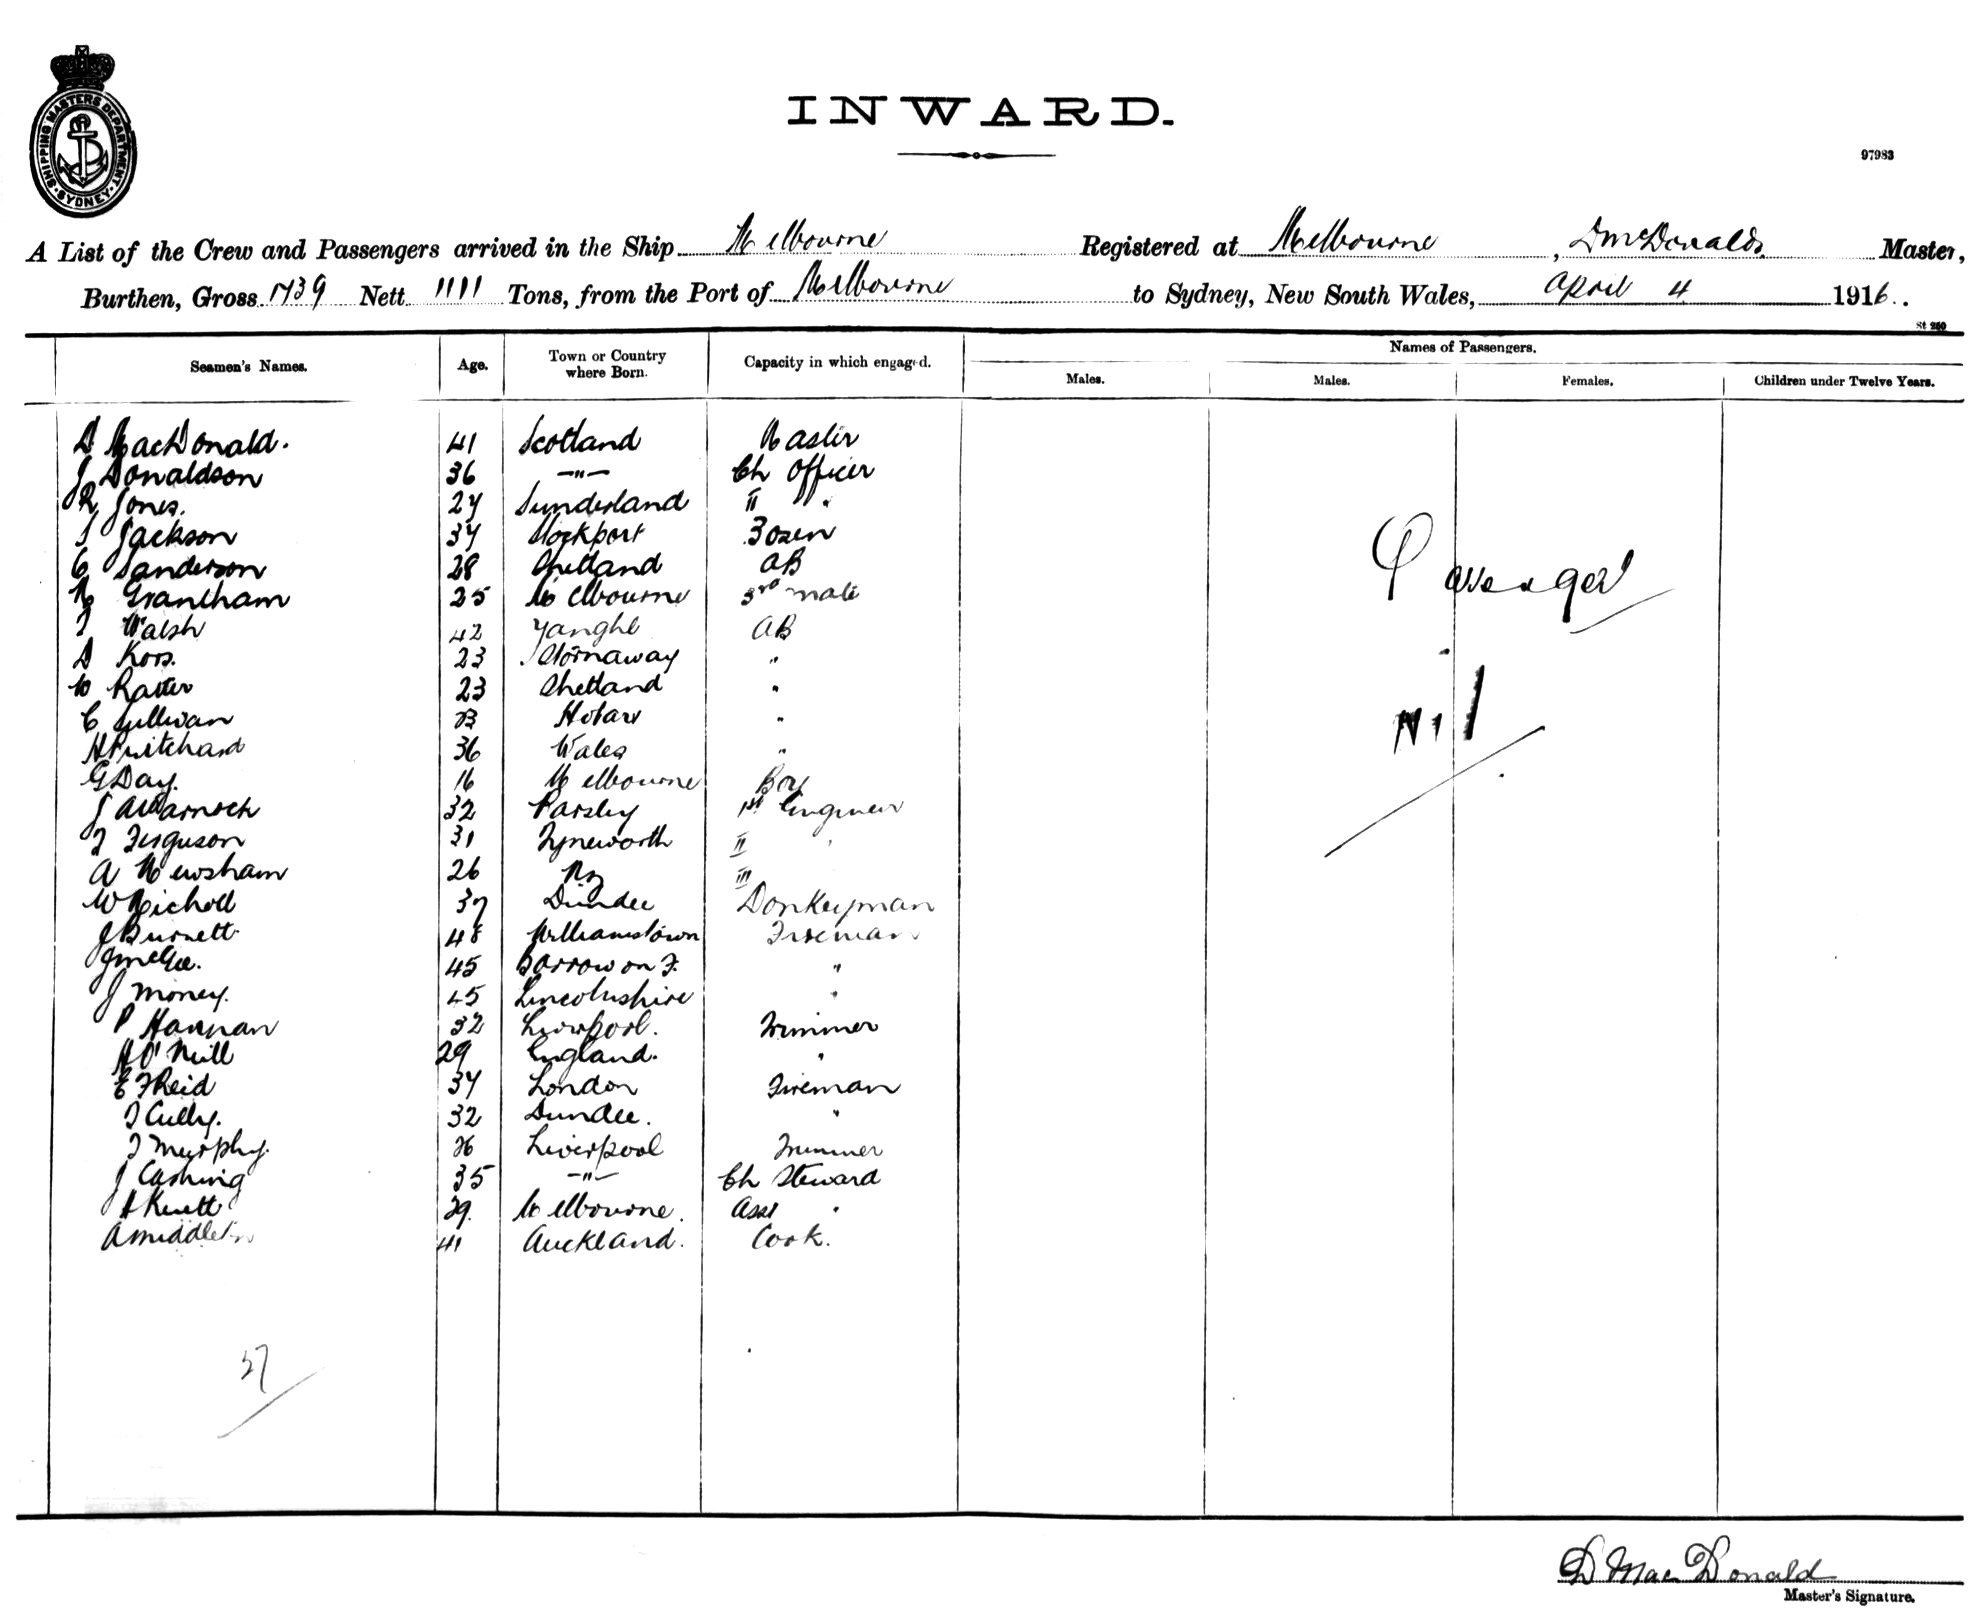 SHIPPING MASTERS DEPARTMENT
SYDNEY
INWARD.
97983
A List of the Crew and Passengers arrived in the Ship Melbourne Registered at Melbourne, D McDonald Master,
Burthen, Gross 1739 Nett 1111 Tons, from the Port of Melbourne to Sydney, New South Wales, April 4 1916.
St 250
Seamen's Names. Age. Town or Country where Born. Capacity in which engaged. Names of Passengers.
Males. Males. Females. Children under Twelve Years.
D MacDonald. 41 Scotland Master
J Donaldson 36 —"— Ch Officer
R Jones. 27 Sunderland II "
S Jackson 37 Stockport Bosen
C Sanderson 28 Shetland AB
N Grantham 25 Melbourne 3rd mate
T Walsh 42 Yanghl AB
D 23 Stornaway "
W Ratter 23 Shetland "
C Sullivan Hobart "
H Pritchard 36 Wales "
G Day. 16 Melbourne Boy
J 32 Parsley 1st Engineer
T Ferguson 31 Tyneworth II "
A Newsham 26 III
W Nicholl 37 Dundee Donkeyman
J Burnett 48 Williamstown Fireman
J McGee. 45 Barrow on F. "
J Money. 45 Lincolnshire "
P Hannan 32 Liverpool. Trimmer
H O'Neill 29 England. "
E F Reid 37 London Fireman
T Cully. 32 Dundee. "
T Murphy. 36 Liverpool Trimmer
J Cashing 35 —"— Ch Steward
A Knett 39. Melbourne. Asst "
A Middleton 41 Auckland. Cook.
Passenger
Nil
27
D MacDonald
Master's Signature.